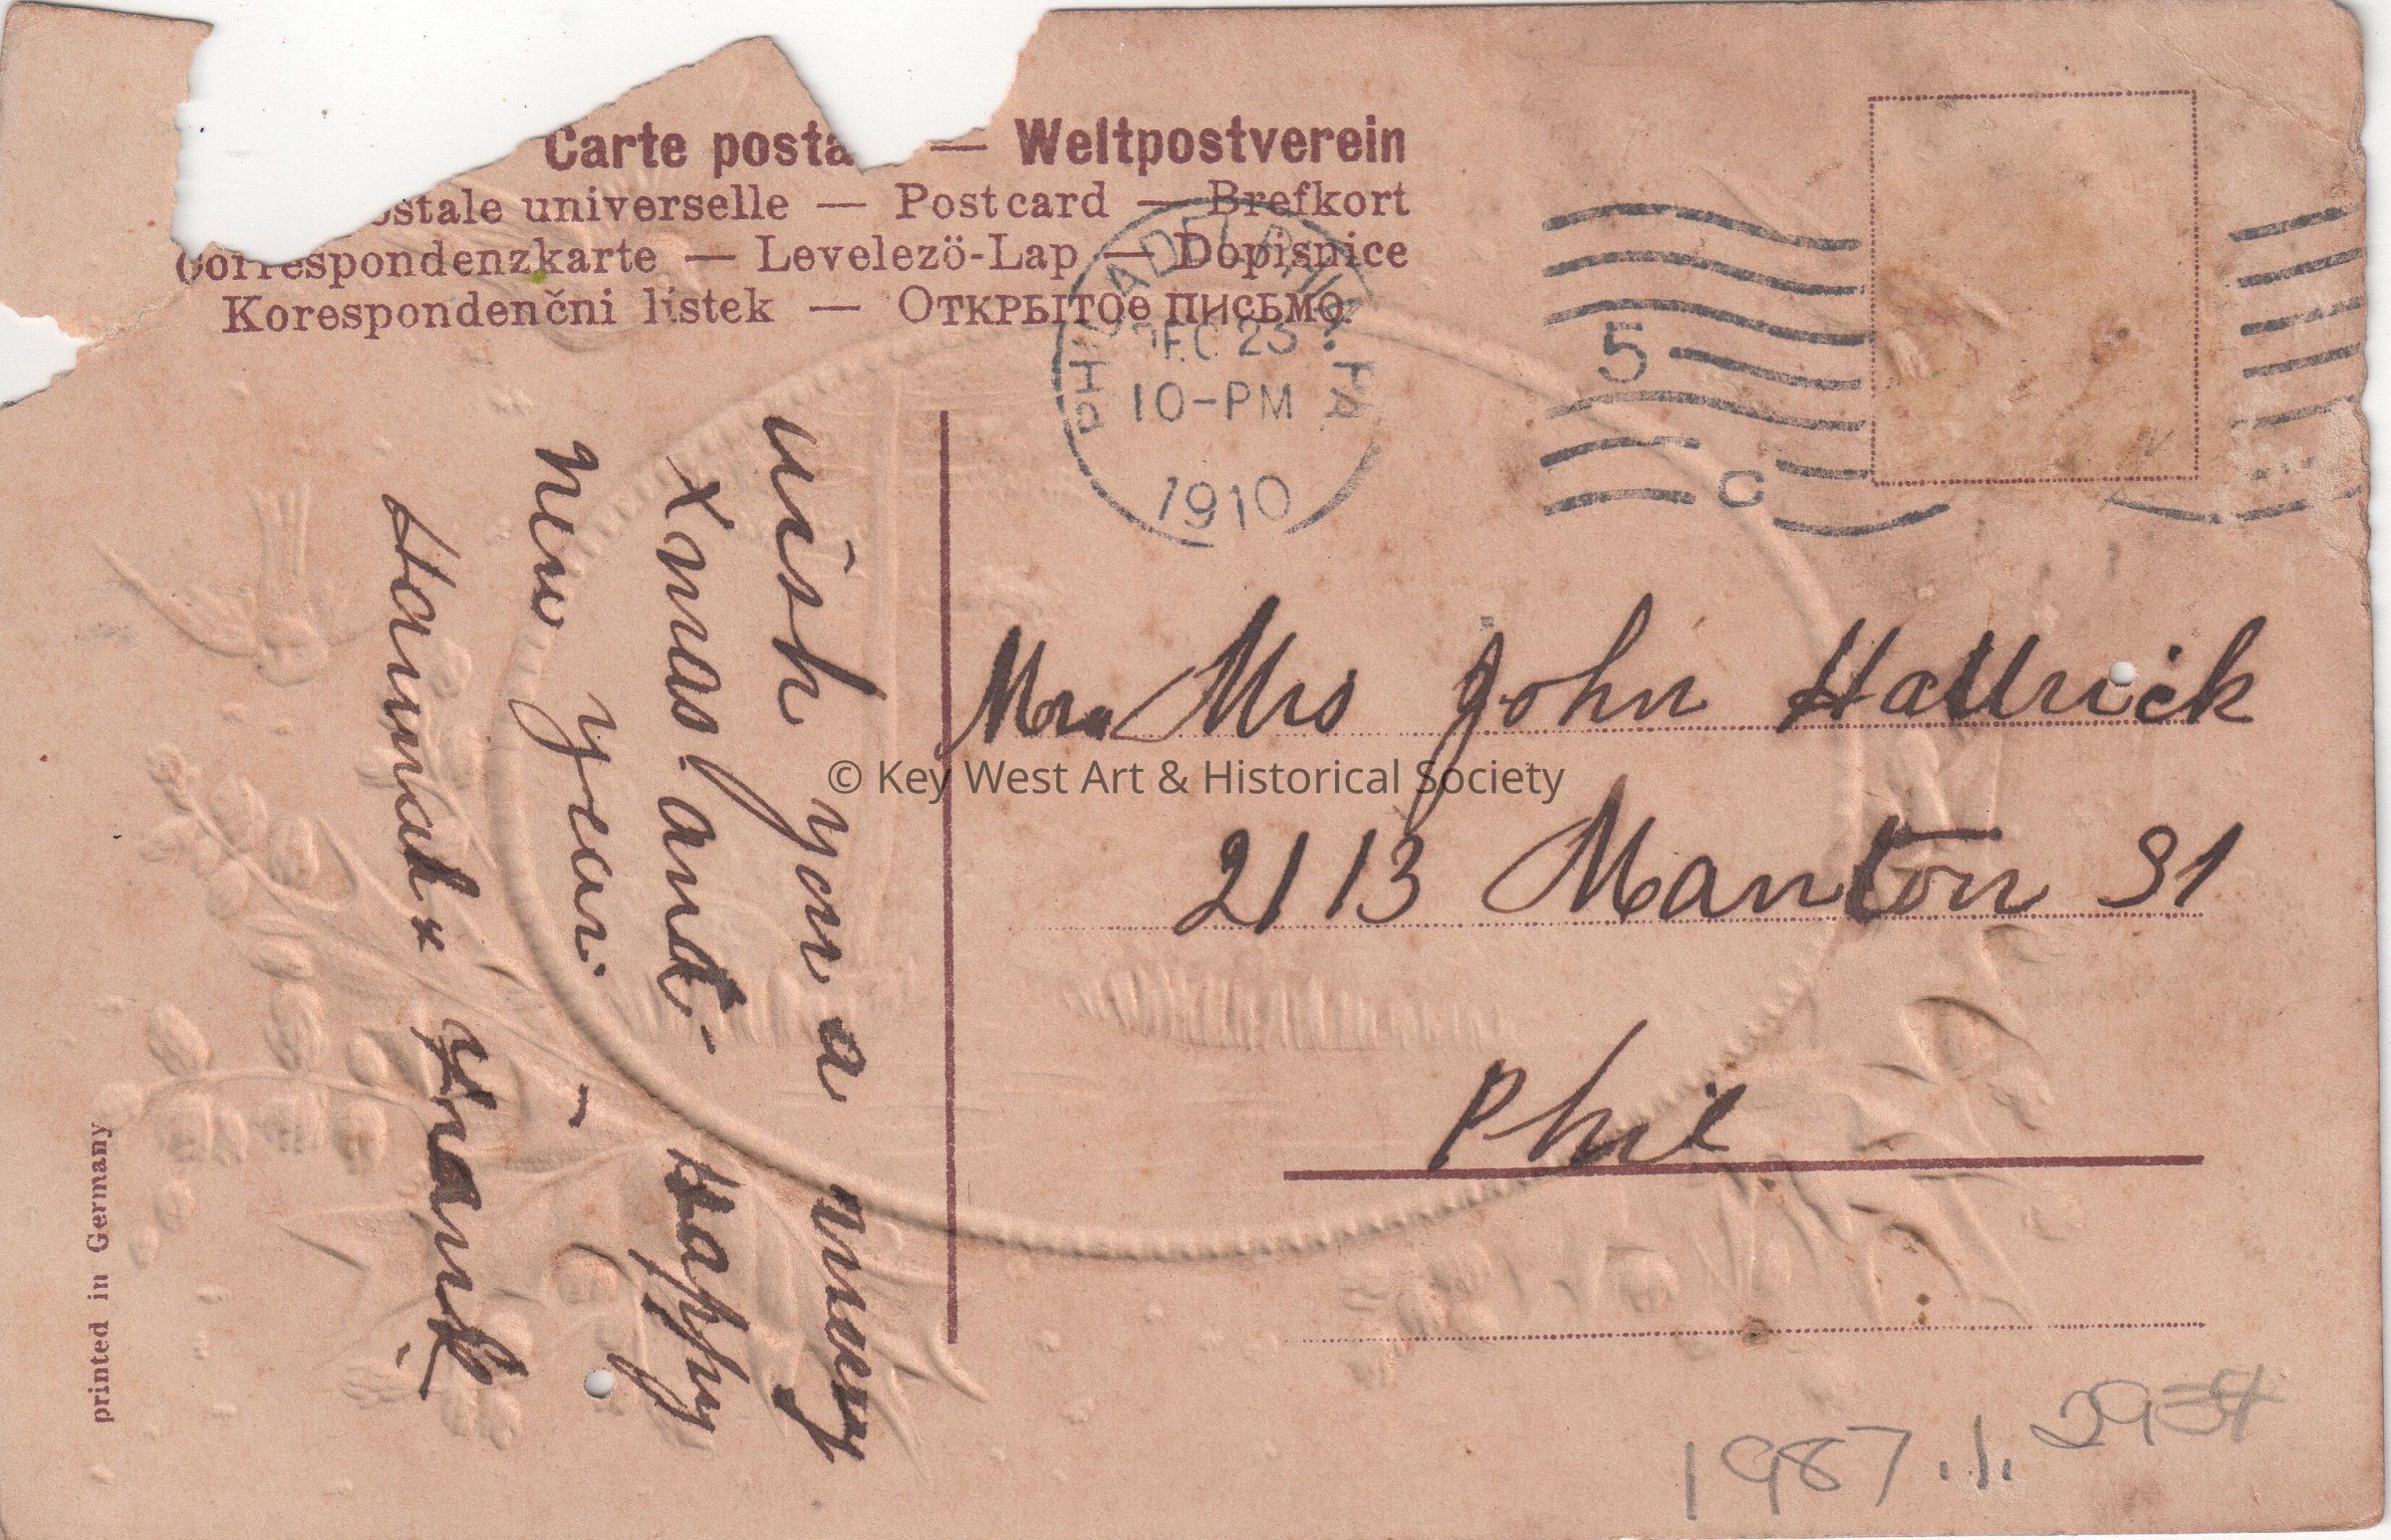 Carte posta — Weltpostverein
ostale universelle — Postcard — Brefkort
Correspondenzkarte — Levelezö-Lap — Dopisnice
Korespondenčni listek — Открытое письмо
PHILADELPHIA, PA.
DEC 23
10-PM
1910
5
C
wish you a merry
Xmas and - Happy
New year -
Hannah & Frank
Mr & Mrs John Hattrick
© Key West Art & Historical Society
2113 Manton St
Phil
printed in Germany
1987.1.